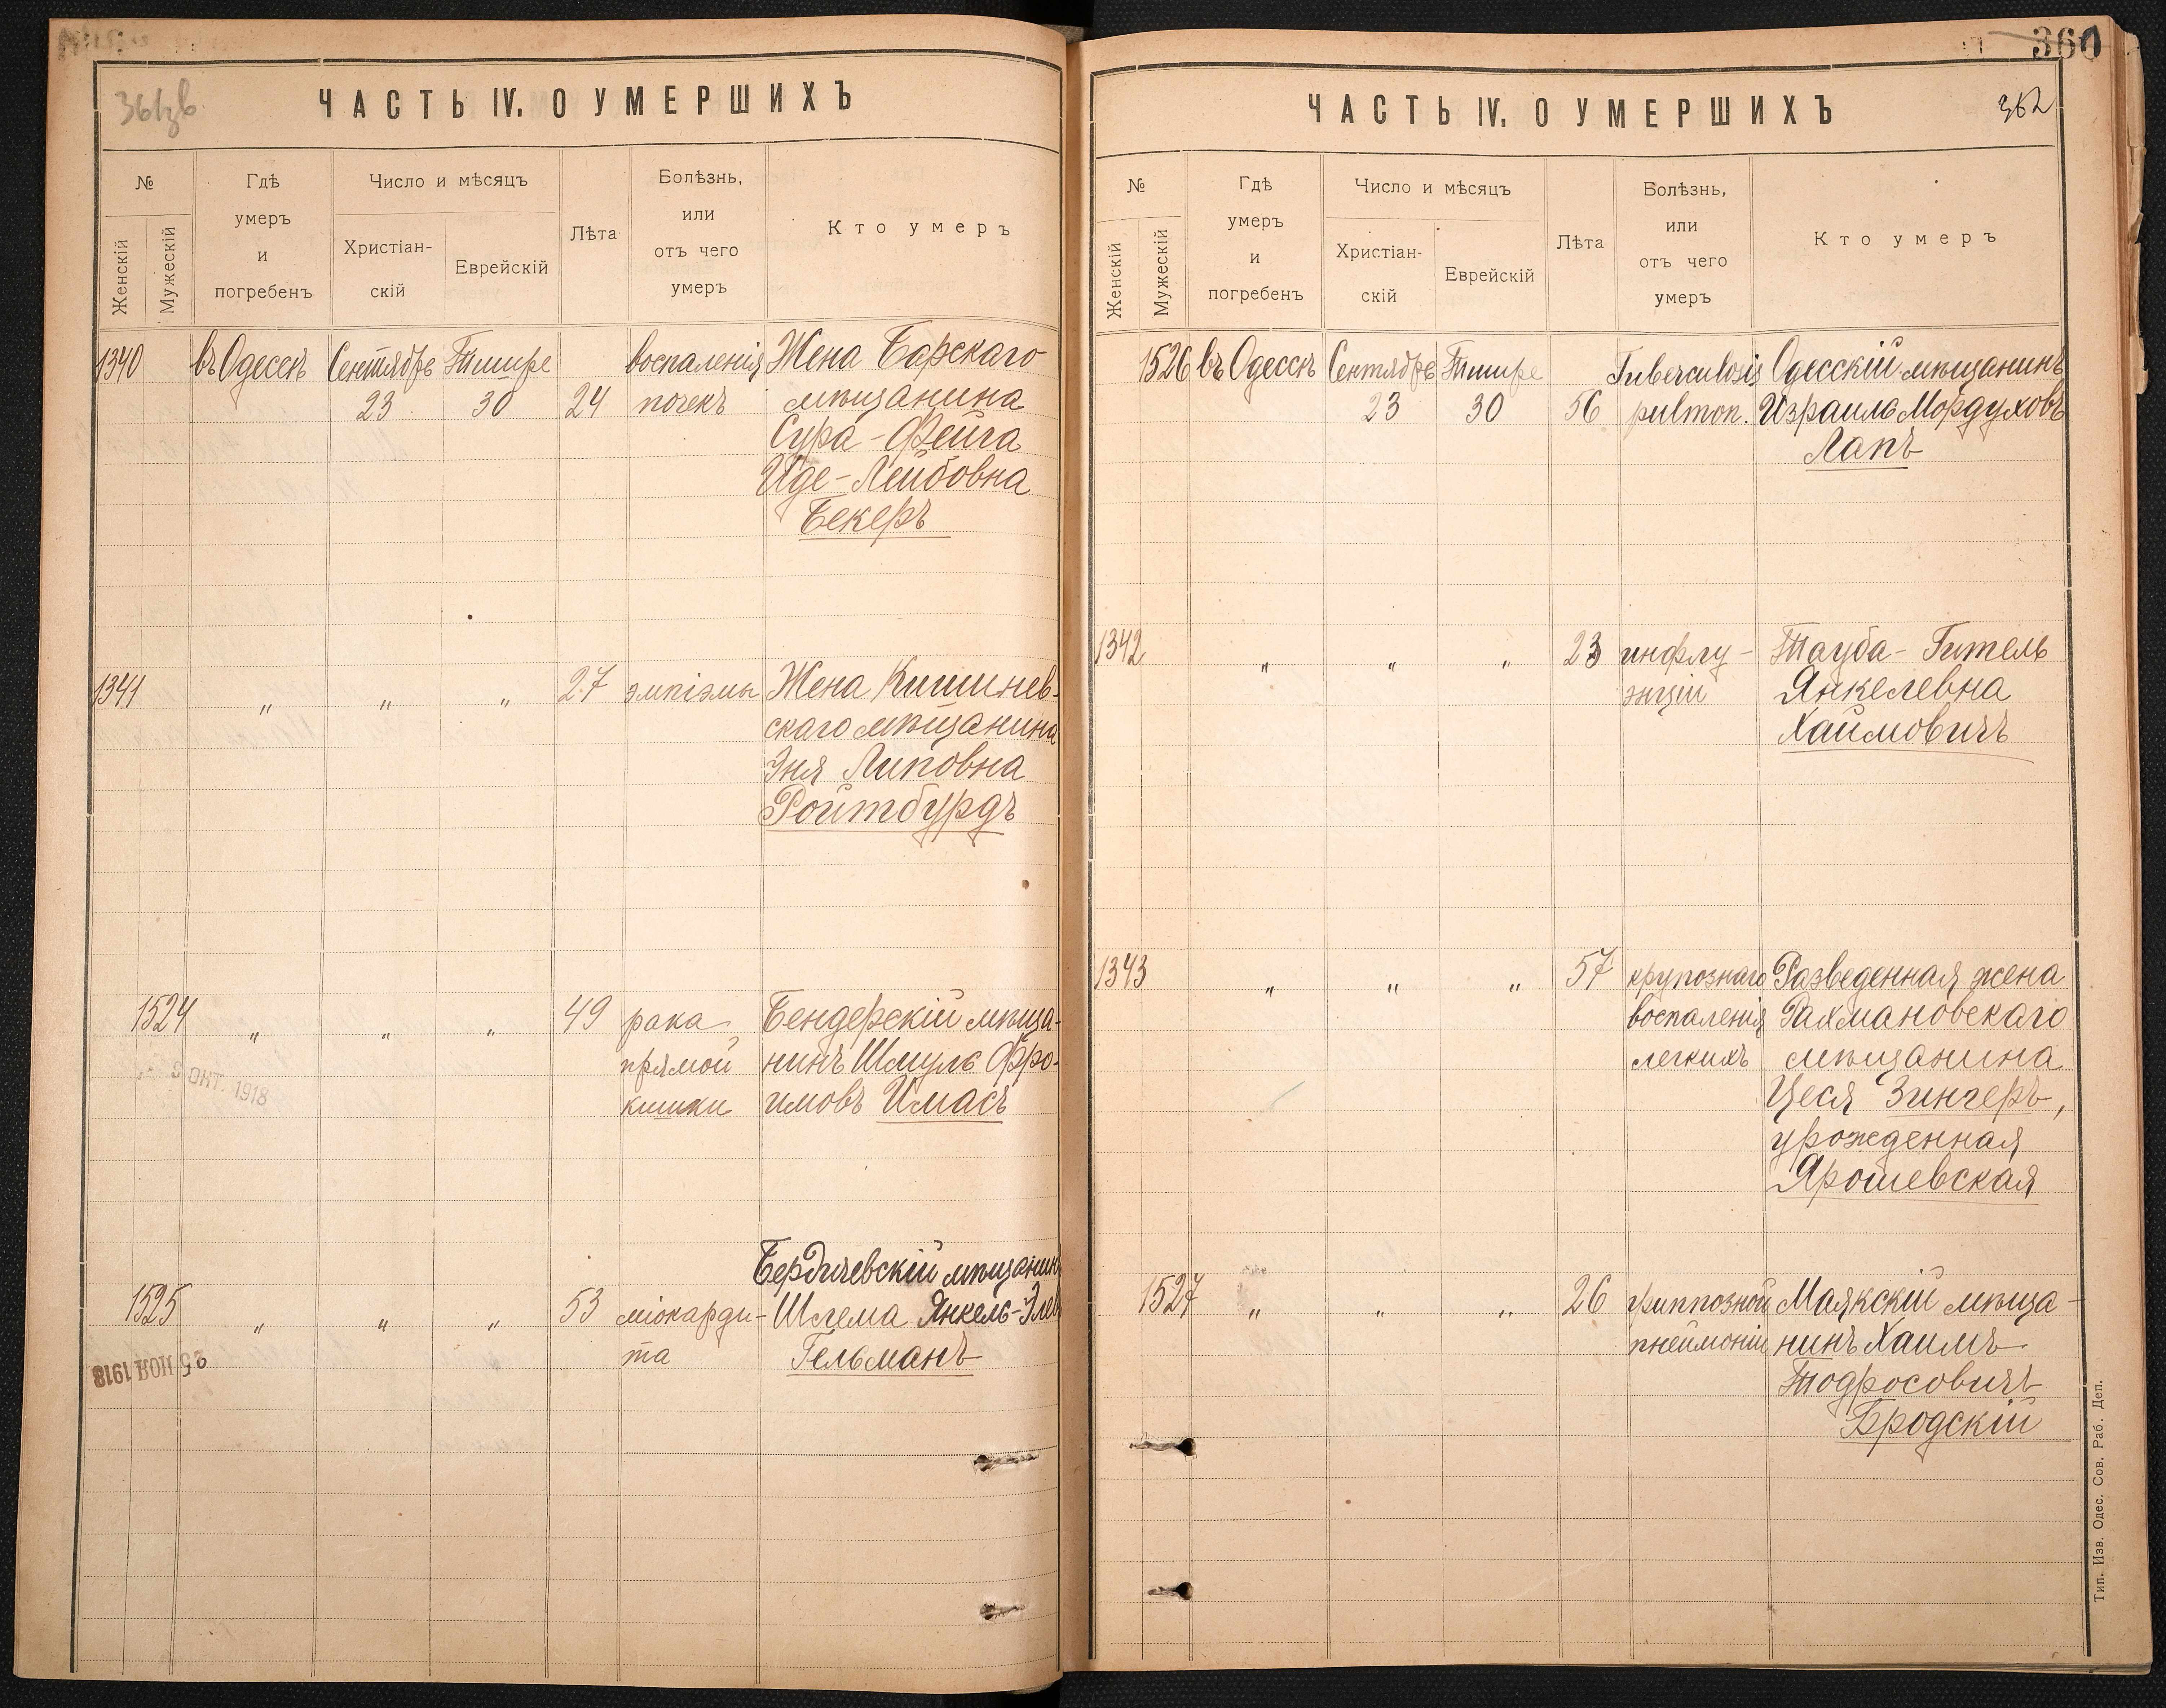 361зв.
ЧАСТЬ IV. О УМЕРШИХЪ
№
Женскій
Мужескій
Гдѣ
умеръ
и
погребенъ
Число и мѣсяцъ
Христіан-
скій
Еврейскій
Лѣта
Болѣзнь,
или
отъ чего
умеръ
Кто умеръ
1340 въ Одессѣ Сентябрь Тишре воспаленія Жена Барскаго
23 30 24 почекъ мѣщанина
Сура-Фейга
Иде-Лейбовна
Бекеръ
1341 " " " 27 эмпіэмы Жена Кишинев-
скаго мѣщанина
Эня Липовна
Ройтбурдъ
1524 " " " 49 рака Бендерскій мѣща-
прямой нинъ Шмуль Фро-
кишки имовъ Имасъ
9 ОКТ. 1918
Бердичевскій мѣщанинъ
1525 " " " 53 міокарди- Шлема Янкель-Элев
та Гельманъ
25 НОЯ 1918
360
362
ЧАСТЬ IV. О УМЕРШИХЪ
№
Женскій
Мужескій
Гдѣ
умеръ
и
погребенъ
Число и мѣсяцъ
Христіан-
скій
Еврейскій
Лѣта
Болѣзнь,
или
отъ чего
умеръ
Кто умеръ
1526 въ Одессѣ Сентябрь Тишре Tuberculosis Одесскій мѣщанинъ
23 30 56 pulmon. Израиль Мордуховъ
Лапъ
1342 " " " 23 инфлу- Тауба-Гитель
энціи Янкелевна
Хаимовичъ
1343 " " " 57 крупознаго Разведенная жена
воспаленія Рахмановскаго
легкихъ мѣщанина
Цеся Зингеръ,
урожденная
Ярошевская
1527 " " " 26 гриппозной Маякскій мѣща-
пнеймоніи нинъ Хаимъ
Тодросовичъ
Бродскій
Тип. Изв. Одес. Сов. Раб. Деп.